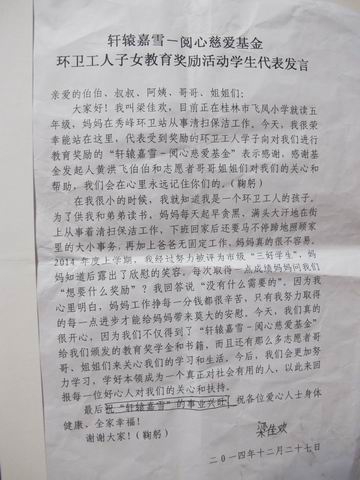 轩辕嘉雪－阅心慈爱基金
环卫工人子女教育奖励活动学生代表发言
亲爱的伯伯、叔叔、阿姨、哥哥、姐姐们：
大家好！我叫梁佳欢，目前正在桂林市飞凤小学就读五
年级，妈妈在秀峰环卫站从事清扫保洁工作。今天，我很荣
幸能站在这里，代表受到奖励的环卫工人学子向对我们进行
教育奖励的“轩辕嘉雪－阅心慈爱基金”表示感谢，感谢基
金发起人黄洪飞伯伯和志愿者哥哥姐姐们对我们的关心和
帮助，我们会在心里永远记住你们的。（鞠躬）
在我很小的时候，我就知道我是一个环卫工人的孩子，
为了供我和弟弟读书，妈妈每天起早贪黑，满头大汗地在街
上从事着清扫保洁工作，下班回家后还要马不停蹄地照顾家
里的大小事务，再加上爸爸无固定工作，妈妈真的很不容易。
2014年度上学期，我经过努力被评为市级“三好学生”，妈
妈知道后露出了欣慰的笑容。每次取得一点成绩妈妈问我们
“想要什么奖励”？我回答说“没有什么需要的”。因为我
心里明白，妈妈工作挣每一分钱都很辛苦，只有我努力取得
的每一点进步才能给妈妈带来莫大的安慰。今天，我们真的
很开心，因为我们不仅得到了“轩辕嘉雪－阅心慈爱基金”
给我们颁发的教育奖学金和书籍，而且还有那么多志愿者哥
哥、姐姐们来关心我们的学习和生活，今后，我们会更加努
力学习，学好本领成为一个真正对社会有用的人，以此来回
报每一位好心人对我们的关心和扶持。
最后祝“轩辕嘉雪”的事业兴旺，祝各位爱心人士身体
健康、全家幸福！
谢谢大家！（鞠躬）
梁佳欢
二〇一四年十二月二十七日